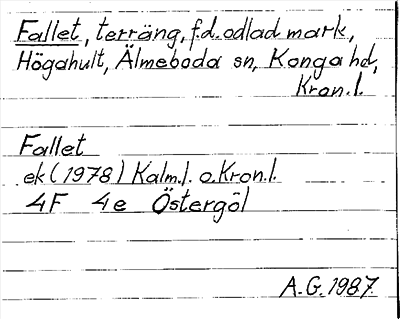 Fallet, terräng, f.d. odlad mark,
Högahult, Älmeboda sn, Konga hd,
Kron.l.
Fallet
ek (1978) Kalm.l. o. Kron.l.
4F 4e Östergöl
A.G. 1987